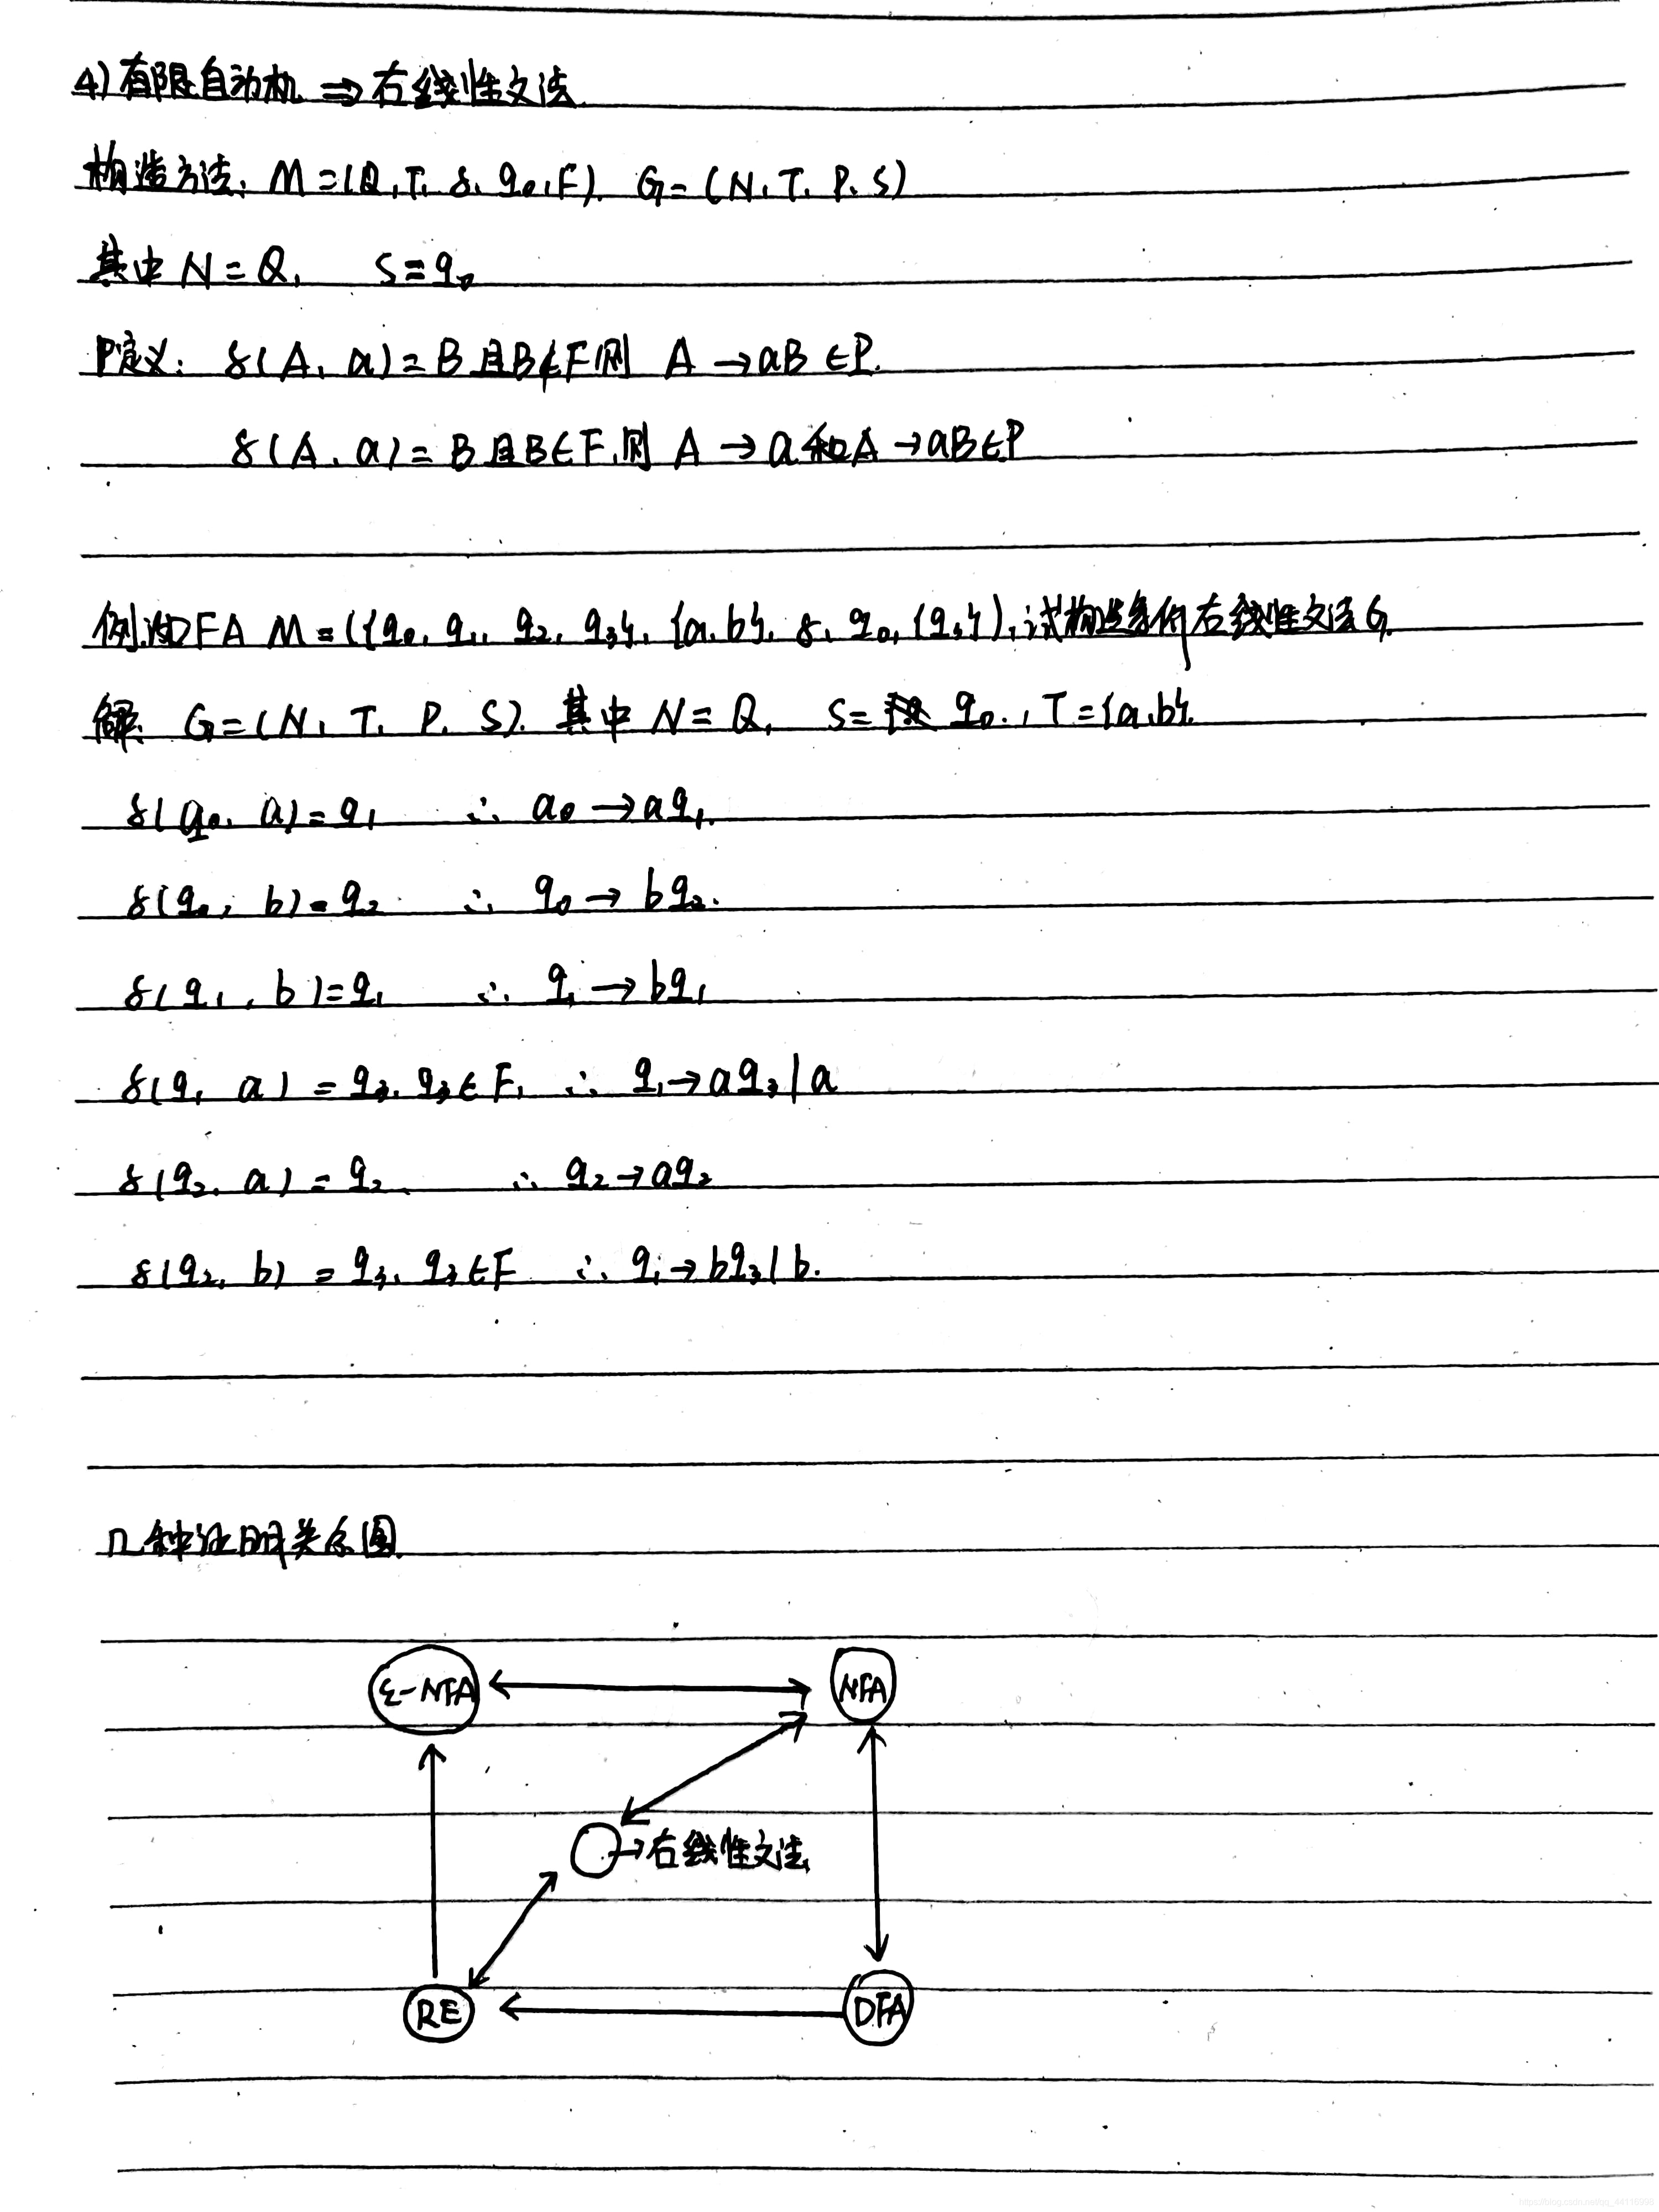 4) 有限自动机 ⇒ 右线性文法
构造方法: M=(Q,T,δ,q₀,F). G=(N,T,P,S)
其中 N=Q, S=q₀
P定义: δ(A,a)=B 且B∉F则 A→aB∈P.
δ(A,a)=B 且B∈F,则 A→a和A→aB∈P
例.设DFA M=({q₀,q₁,q₂,q₃},{a,b},δ,q₀,{q₃}),试构造等价右线性文法G.
解: G=(N,T,P,S). 其中 N=Q, S= q₀., T={a,b}.
δ(q₀,a)=q₁ ∴ a₀→aq₁.
δ(q₀,b)=q₂. ∴ q₀→bq₂.
δ(q₁,b)=q₁ ∴ q₁→bq₁
δ(q₁ a)=q₃. q₃∈F, ∴ q₁→aq₃|a
δ(q₂,a)=q₂. ∴ q₂→aq₂
δ(q₂,b)=q₃, q₃∈F ∴ q₁→bq₃|b.
几种证明关系图
ε-NFA NFA
→右线性文法
RE DFA